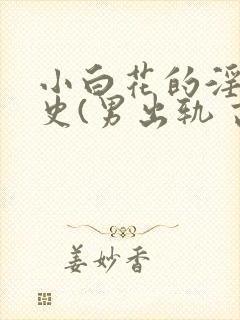 小白花的淫
史(男出轨
姜妙香